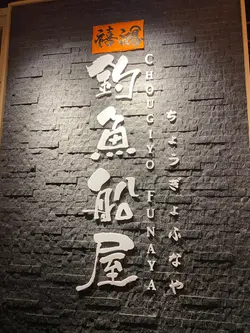 釣魚船屋
CHOUGIYO FUNAYA
ちょうぎょふなや